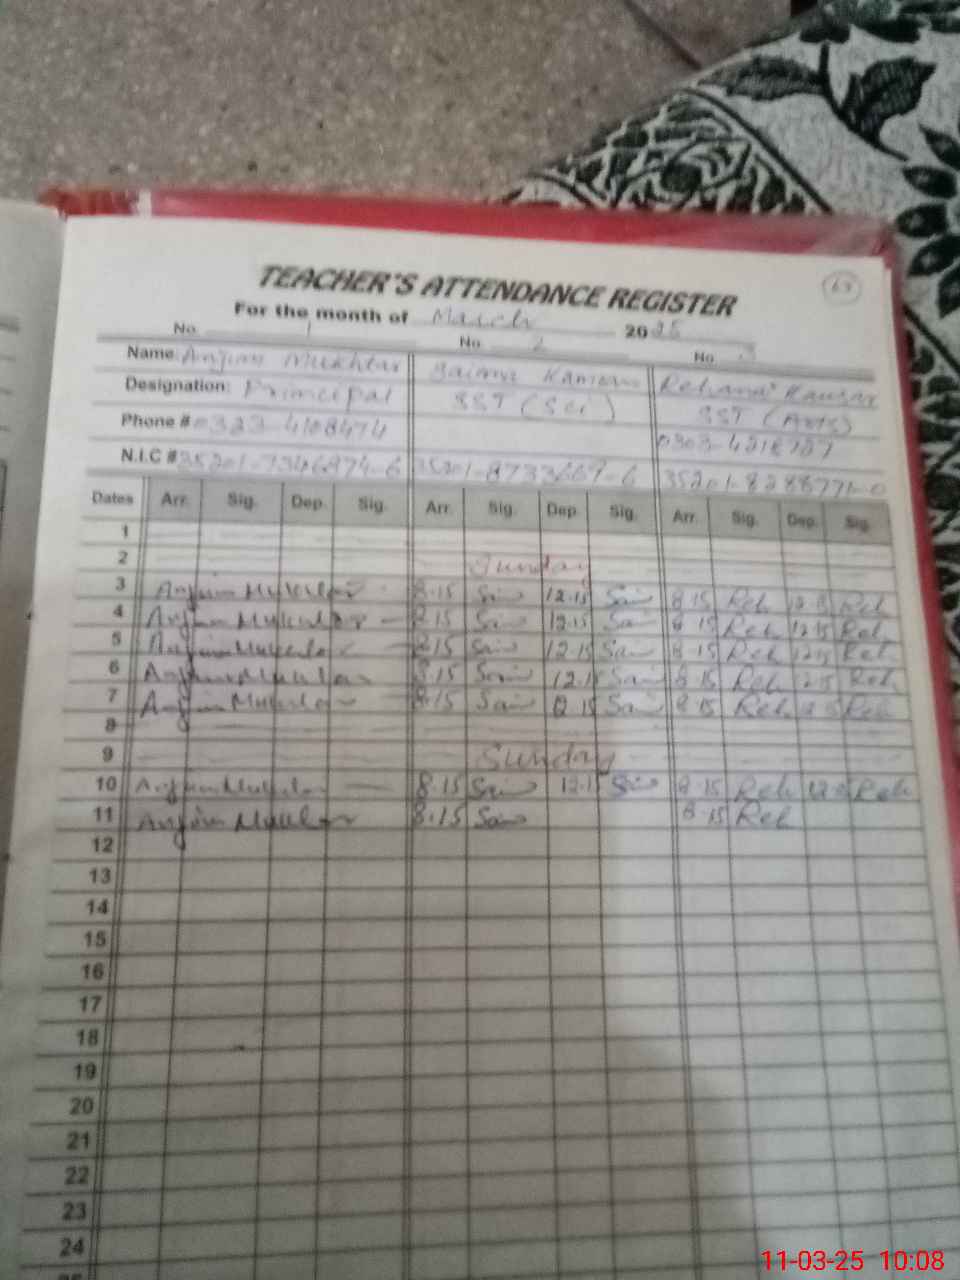 63
TEACHER'S ATTENDANCE REGISTER
For the month of March 2025
No. 1 No. 2 No. 3
Name: Anjum Mukhtar Saima Kanwal Rehana Kausar
Designation: Principal SST (Sci) SST (Arts)
Phone # 0323-4108474 0303-4218727
N.I.C # 35201-7346874-6 35201-8733667-6 35201-8288771-0
Dates Arr. Sig. Dep. Sig. Arr. Sig. Dep. Sig. Arr. Sig. Dep. Sig.
1
2 Sunday
3 Anjum Mukhtar 8.15 Sai 12.15 Sai 8.15 Reh 12.15 Reh
4 Anjum Mukhtar 8.15 Sai 12.15 Sai 8.15 Reh 12.15 Reh
5 Anjum Mukhtar 8.15 Sai 12.15 Sai 8.15 Reh 12.15 Reh
6 Anjum Mukhtar 8.15 Sai 12.15 Sai 8.15 Reh 12.15 Reh
7 Anjum Mukhtar 8.15 Sai 12.15 Sai 8.15 Reh 12.15 Reh
8
9 Sunday
10 Anjum Mukhtar 8.15 Sai 12.15 Sai 8.15 Reh 12.15 Reh
11 Anjum Mukhtar 8.15 Sai 8.15 Reh
12
13
14
15
16
17
18
19
20
21
22
23
24
25
11-03-25 10:08